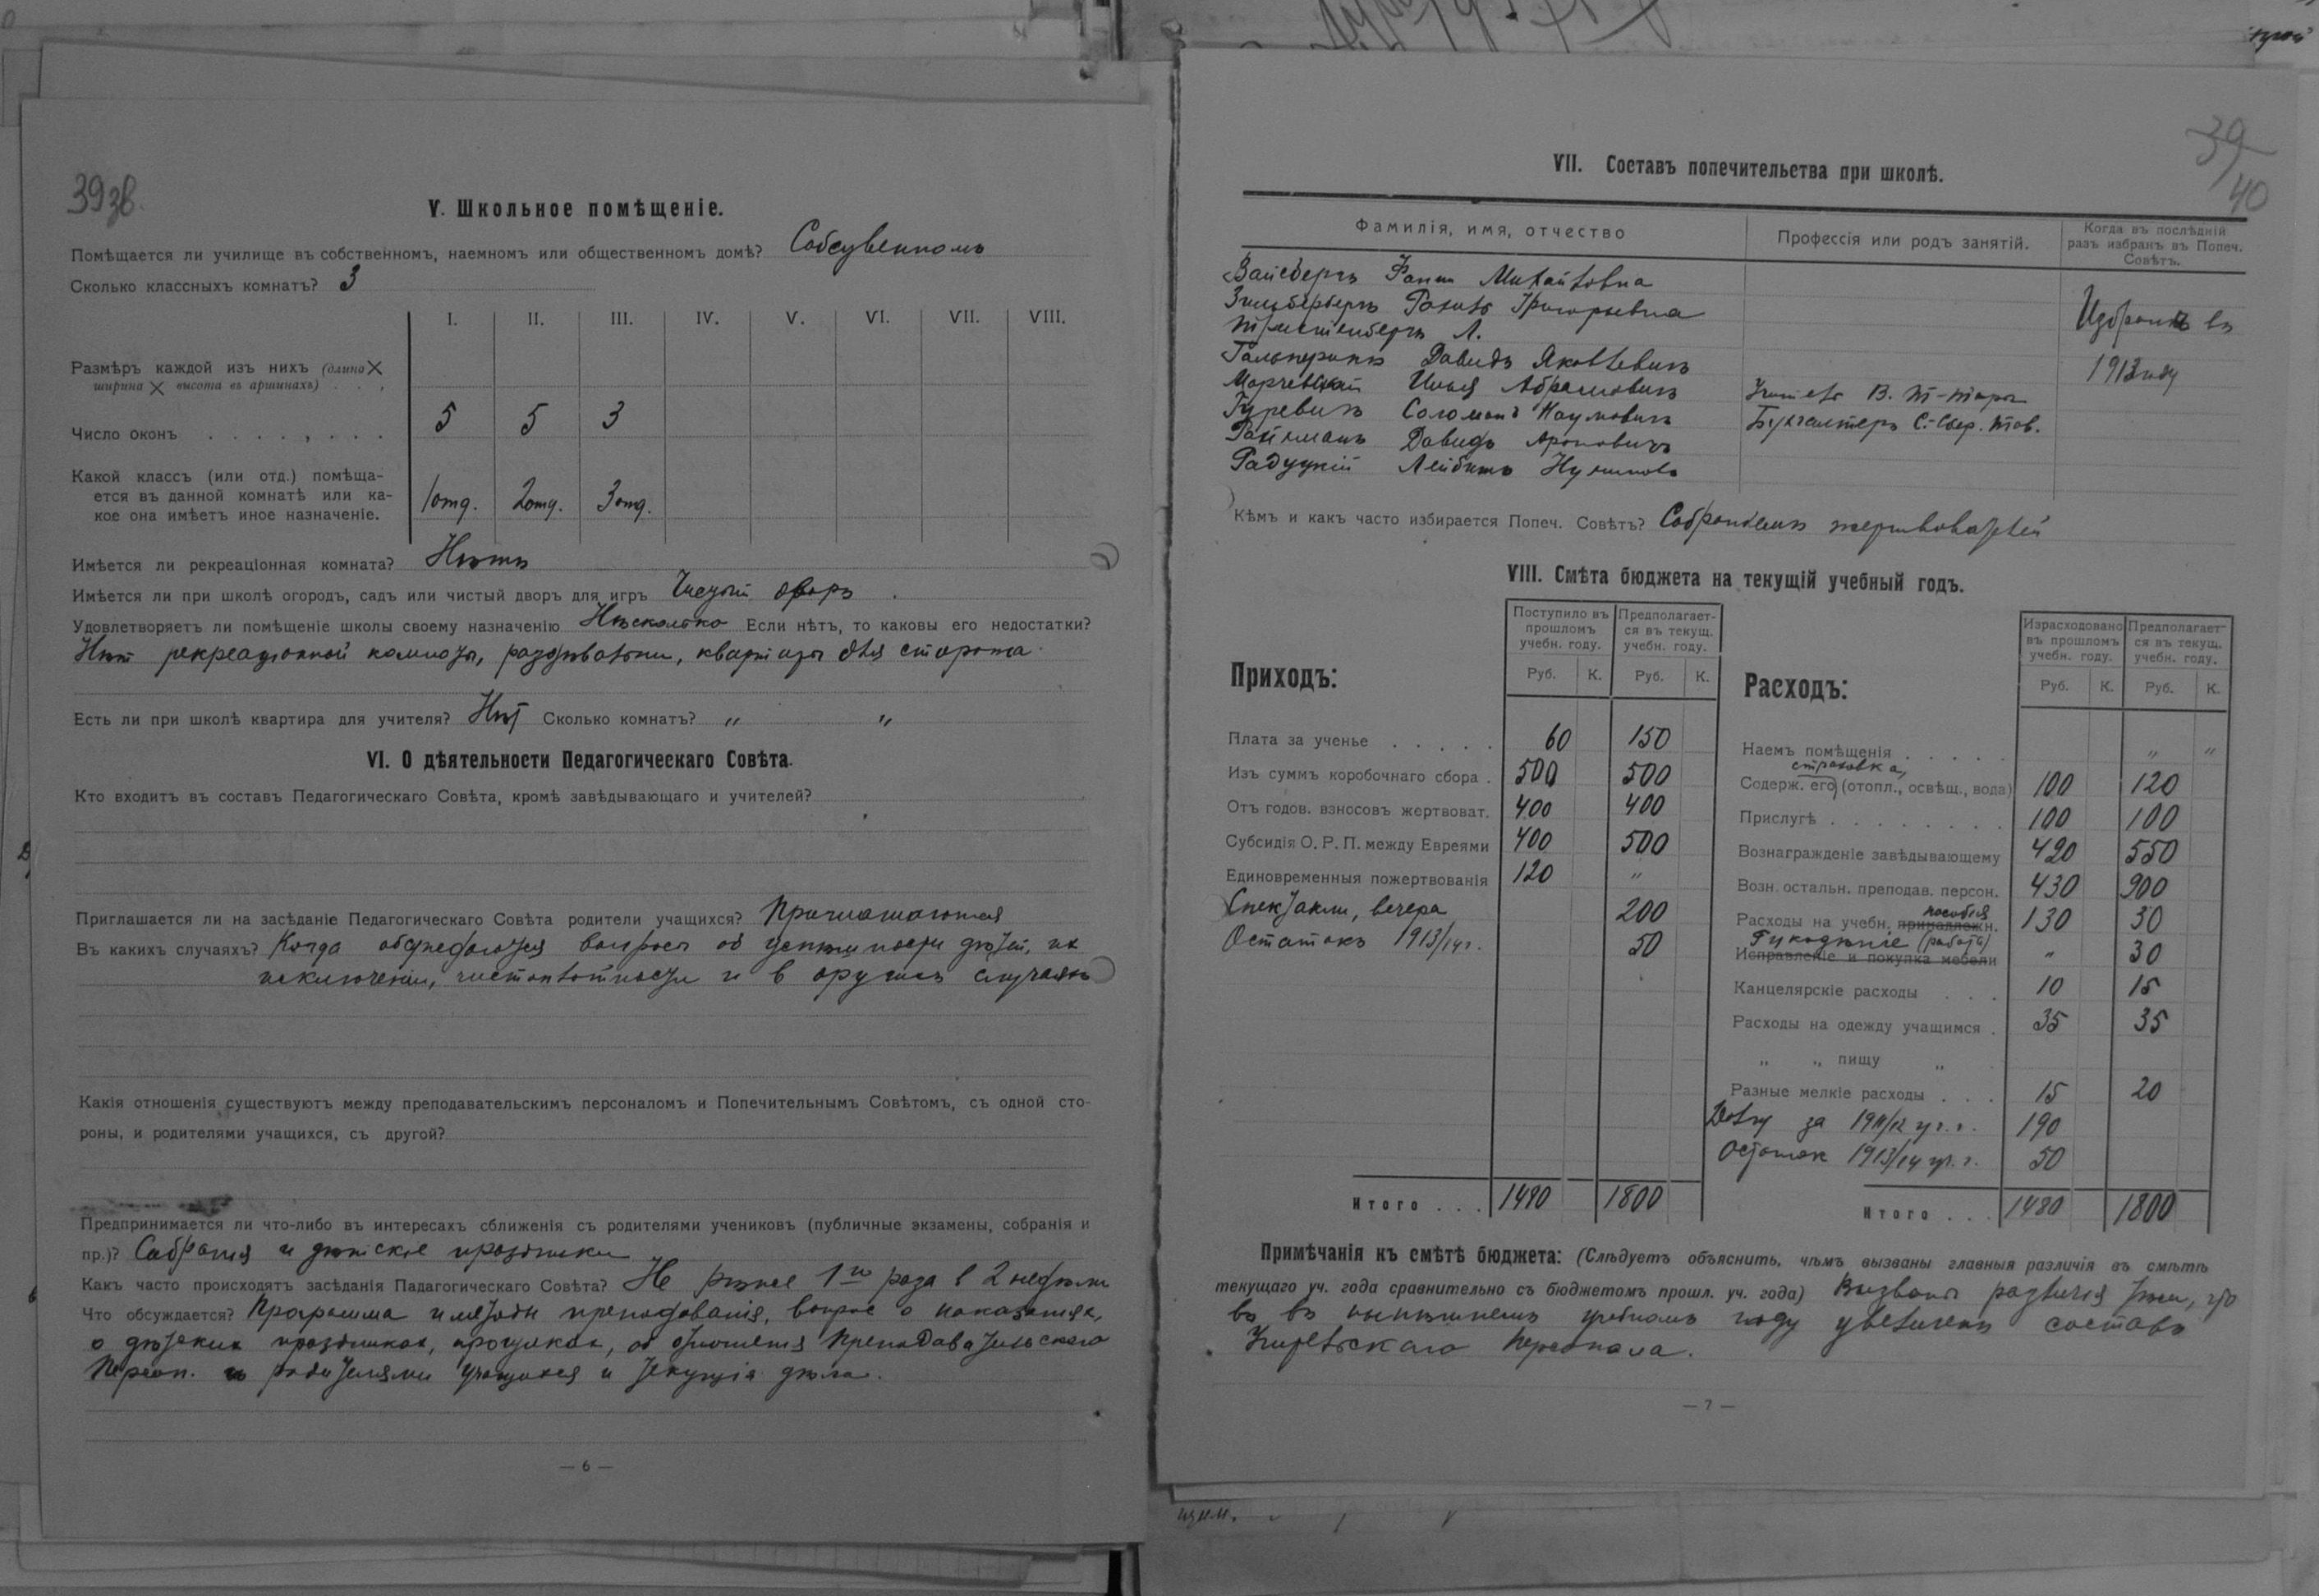 39зв.
V. Школьное помѣщеніе.
Помѣщается ли училище въ собственномъ, наемномъ или общественномъ домѣ? Собственномъ
Сколько классныхъ комнатъ? 3
I. II. III. IV. V. VI. VII. VIII.
Размѣръ каждой изъ нихъ (длина ×
ширина × высота въ аршинахъ) . . ,
Число оконъ . . . . , . . . 5 5 3
Какой классъ (или отд.) помѣща-
ется въ данной комнатѣ или ка-
кое она имѣетъ иное назначеніе. 1 отд. 2 отд. 3 отд.
Имѣется ли рекреаціонная комната? Нѣтъ
Имѣется ли при школѣ огородъ, садъ или чистый дворъ для игръ Чистый дворъ
Удовлетворяетъ ли помѣщеніе школы своему назначенію Нѣсколько Если нѣтъ, то каковы его недостатки?
Нѣт рекреаціонной комнаты, раздѣвальни, квартиры для сторожа
Есть ли при школѣ квартира для учителя? Нѣт Сколько комнатъ? „ „
VI. О дѣятельности Педагогическаго Совѣта.
Кто входитъ въ составъ Педагогическаго Совѣта, кромѣ завѣдывающаго и учителей?
Приглашается ли на засѣданіе Педагогическаго Совѣта родители учащихся? Приглашаются
Въ какихъ случаяхъ? Когда обсуждаются вопросы об успѣшности дѣтей, их
исключеніи, чистоплотности и в других случаях
Какія отношенія существуютъ между преподавательскимъ персоналомъ и Попечительнымъ Совѣтомъ, съ одной сто-
роны, и родителями учащихся, съ другой?
Предпринимается ли что-либо въ интересахъ сближенія съ родителями учениковъ (публичные экзамены, собранія и
пр.)? Собрания и дѣтскіе праздники
Какъ часто происходятъ засѣданія Падагогическаго Совѣта? Не рѣже 1го раза в 2 недѣли
Что обсуждается? Программа и методы преподованія, вопрос о наказаніях,
о дѣтских праздниках, прогулках, об отношенія Преподавательскаго
Персон. с родителями учащихся и текущія дѣла.
— 6 —
39
40
VII. Составъ попечительства при школѣ.
Фамилія, имя, отчество Профессія или родъ занятій. Когда въ послѣдній
разъ избранъ въ Попеч.
Совѣтъ.
Вайсбергъ Фани Михайловна
Зильбербергъ Рахиль Григорьевна Избраны въ
Л.
Гальперинъ Давидъ Яковлевичъ 1913 году
Марчевскій Илья Абрамовичъ Учитель В. Т-Торы
Гуревичъ Соломонъ Наумовичъ Бухгалтеръ С.-Сбер. Тов.
Давидъ Ароновичъ
Радуцкій Лейбишъ
Кѣмъ и какъ часто избирается Попеч. Совѣтъ? Собраніемъ жертвователей
VIII. Смѣта бюджета на текущій учебный годъ.
Приходъ: Поступило въ прошломъ учебн. году. Предполагает-ся въ текущ. учебн. году.
Руб. К. Руб. К.
Плата за ученье . . . . . 60 150
Изъ суммъ коробочнаго сбора . 500 500
Отъ годов. взносовъ жертвоват. 400 400
Субсидія О. Р. П. между Евреями 400 500
Единовременныя пожертвованія 120 „
Спектакли, вечера 200
Остатокъ 1913/14 г. 50
Итого . . . 1480 1800
Расходъ: Израсходовано въ прошломъ учебн. году. Предполагает-ся въ текущ. учебн. году.
Руб. К. Руб. К.
Наемъ помѣщенія . . . . . „ „
страховка,
Содерж. его (отопл., освѣщ., вода) 100 120
Прислугѣ . . . . . . . . 100 100
Вознагражденіе завѣдывающему 420 550
Возн. остальн. преподав. персон. 430 900
пособія
Расходы на учебн. принадлежн. 130 30
Рукодѣліе (работа)
Исправленіе и покупка мебели „ 30
Канцелярскіе расходы . . . 10 15
Расходы на одежду учащимся . 35 35
„ „ пищу „
Разные мелкіе расходы . . . 15 20
Долгу за 1911/12 уч. г. 190
Остаток 1913/14 уч. г. 50
Итого . . . 1480 1800
Примѣчанія къ смѣтѣ бюджета: (Слѣдуетъ объяснить, чѣмъ вызваны главныя различія въ смѣтѣ
текущаго уч. года сравнительно съ бюджетомъ прошл. уч. года) Вызваны различія тѣмъ, что
въ нынѣшнемъ учебномъ году увеличенъ составъ
Учительскаго персонала.
— 7 —